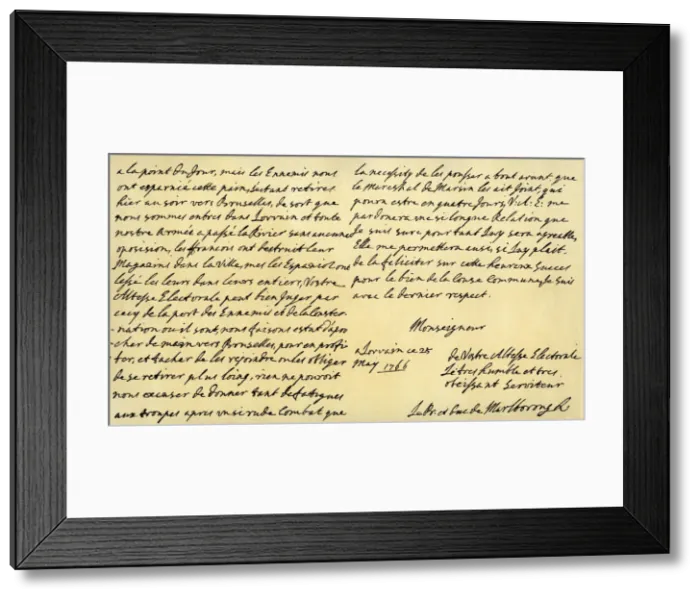 a la point du Jour, mais les Ennemis nous
ont esparnié cette pein, sestant retires
hier au soir vers Bruselles, de sort que
nous sommes entres dans Lorvain et toute
nostre Armée a passé la Rivier sans aucune
oposision, les francois ont destruit leur
Magazins dans la Ville, mes les Espaniols ont
lessé les leurs dans leurs entier, Vostre
Altesse Electorale peut bien Juger par
cecy de la part des Ennemis et de la Conster-
nation ou il sont, nous faisons estat d'apro
cher demain vers Bruselles, pour en profi-
ter, et tacher de les rejoindre ou les obliger
de se retirer plus loing, rien ne pouroit
nous excuser de donner tant de fatigues
aux troupes apres un si rude Combat que
la necessity de les pousser a tout avant que
le Mareshal de Marsin les ait Joint, qui
poura estre en quatre Jours, V: A: E: me
pardonera une si longue Relation que
Je suis sure pourtant Luy sera agreable,
Elle me permettera aussi, si Luy plait.
de la feliciter sur cette heureux Succes
pour le bien de la Cause Commune Je suis
avec le dernier respect.
Monseigneur
a Lorvain ce 25
May 1706
de Vostre Altesse Electorale
Le tres humble et tres
obeissant Serviteur
Le Pr. et Duc de Marlborough